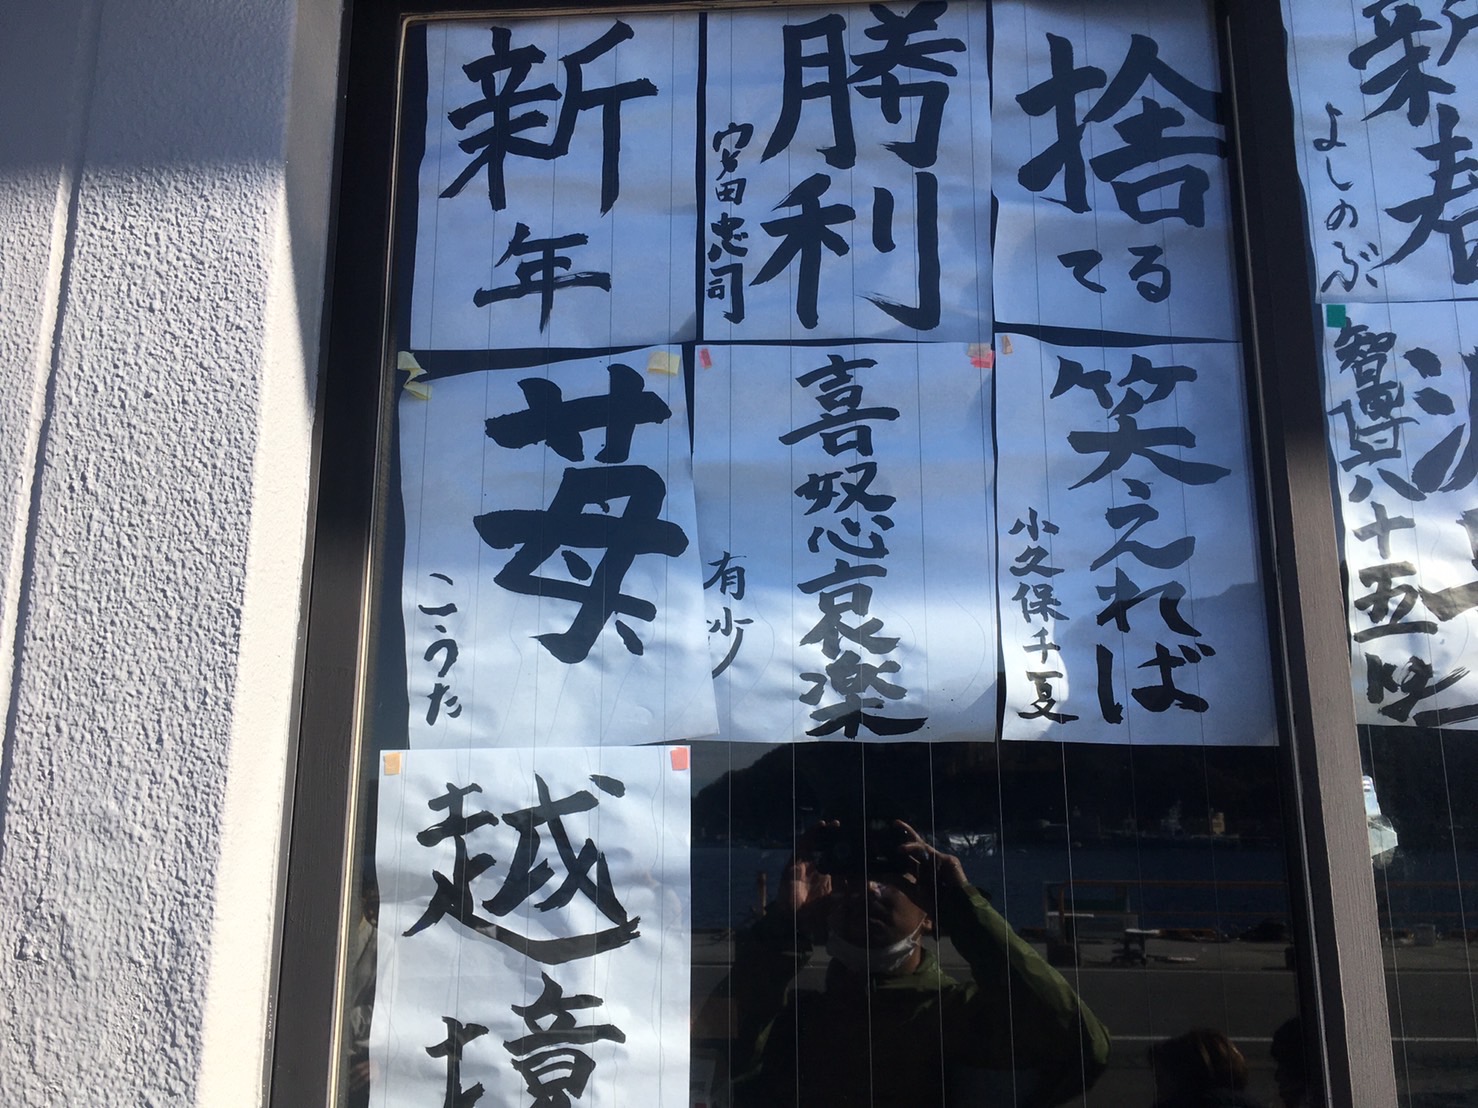 新年
勝利
忠司
捨てる
新春
よしのぶ
苺
こうた
喜怒哀楽
有沙
笑えれば
小久保千夏
八十五
越境